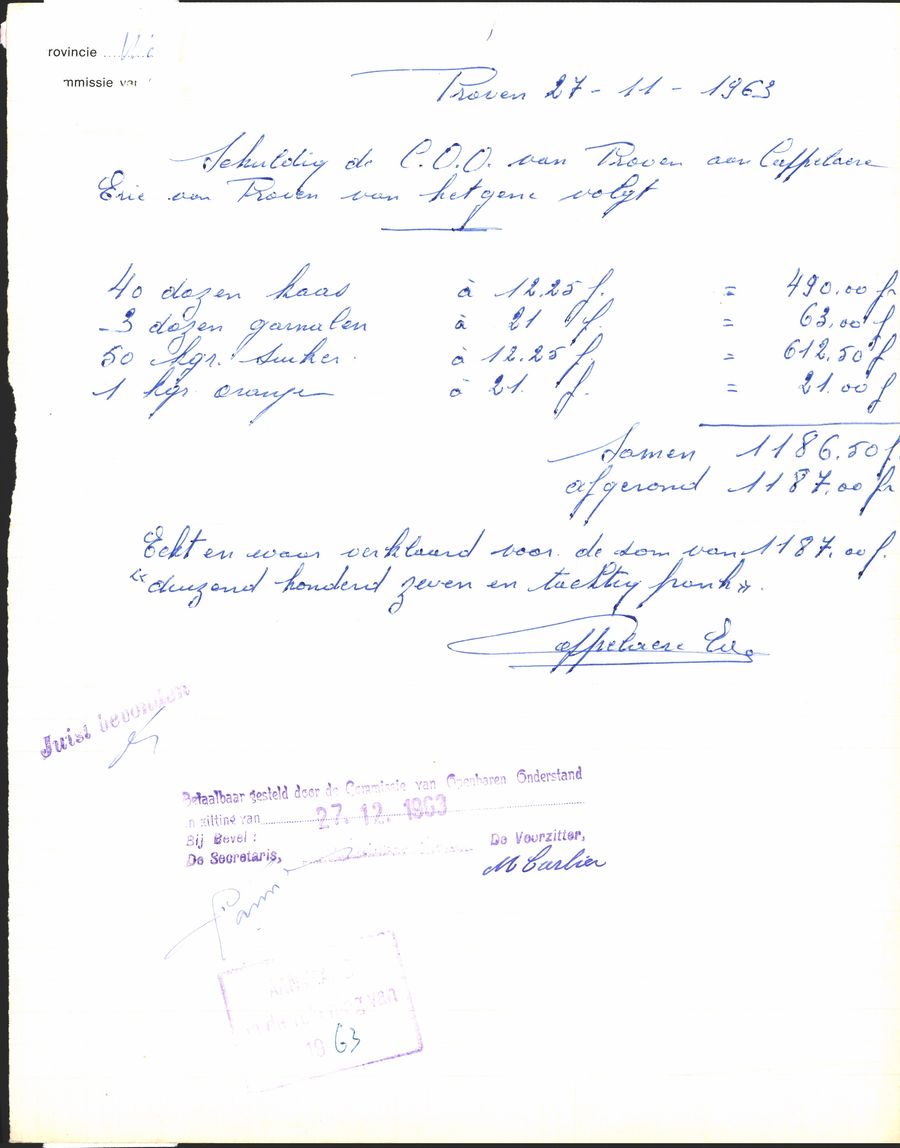 rovincie
mmissie van
Proven 27 - 11 - 1963
Schuldig de C.O.O. van Proven aan Cappelaere
Eric van Proven van hetgene volgt
40 dozen kaas à 12.25 f. = 490.00 fr
3 dozen garnalen à 21 f. = 63,00 f
50 kgr. suiker. à 12.25 f. = 612,50 f
1 kgr. oranje à 21. f. = 21.00 f
Samen 1186.50 f.
afgerond 1187,00 fr
Echt en waar verklaard voor de som van 1187.00 f.
"duizend honderd zeven en tachtig frank".
Cappelaere
Juist bevonden
Betaalbaar gesteld door de Commissie van Openbaren Onderstand
in zitting van 27. 12. 1963
Bij Bevel :
De Secretaris, De Voorzitter,
M Carlier
van
19 63